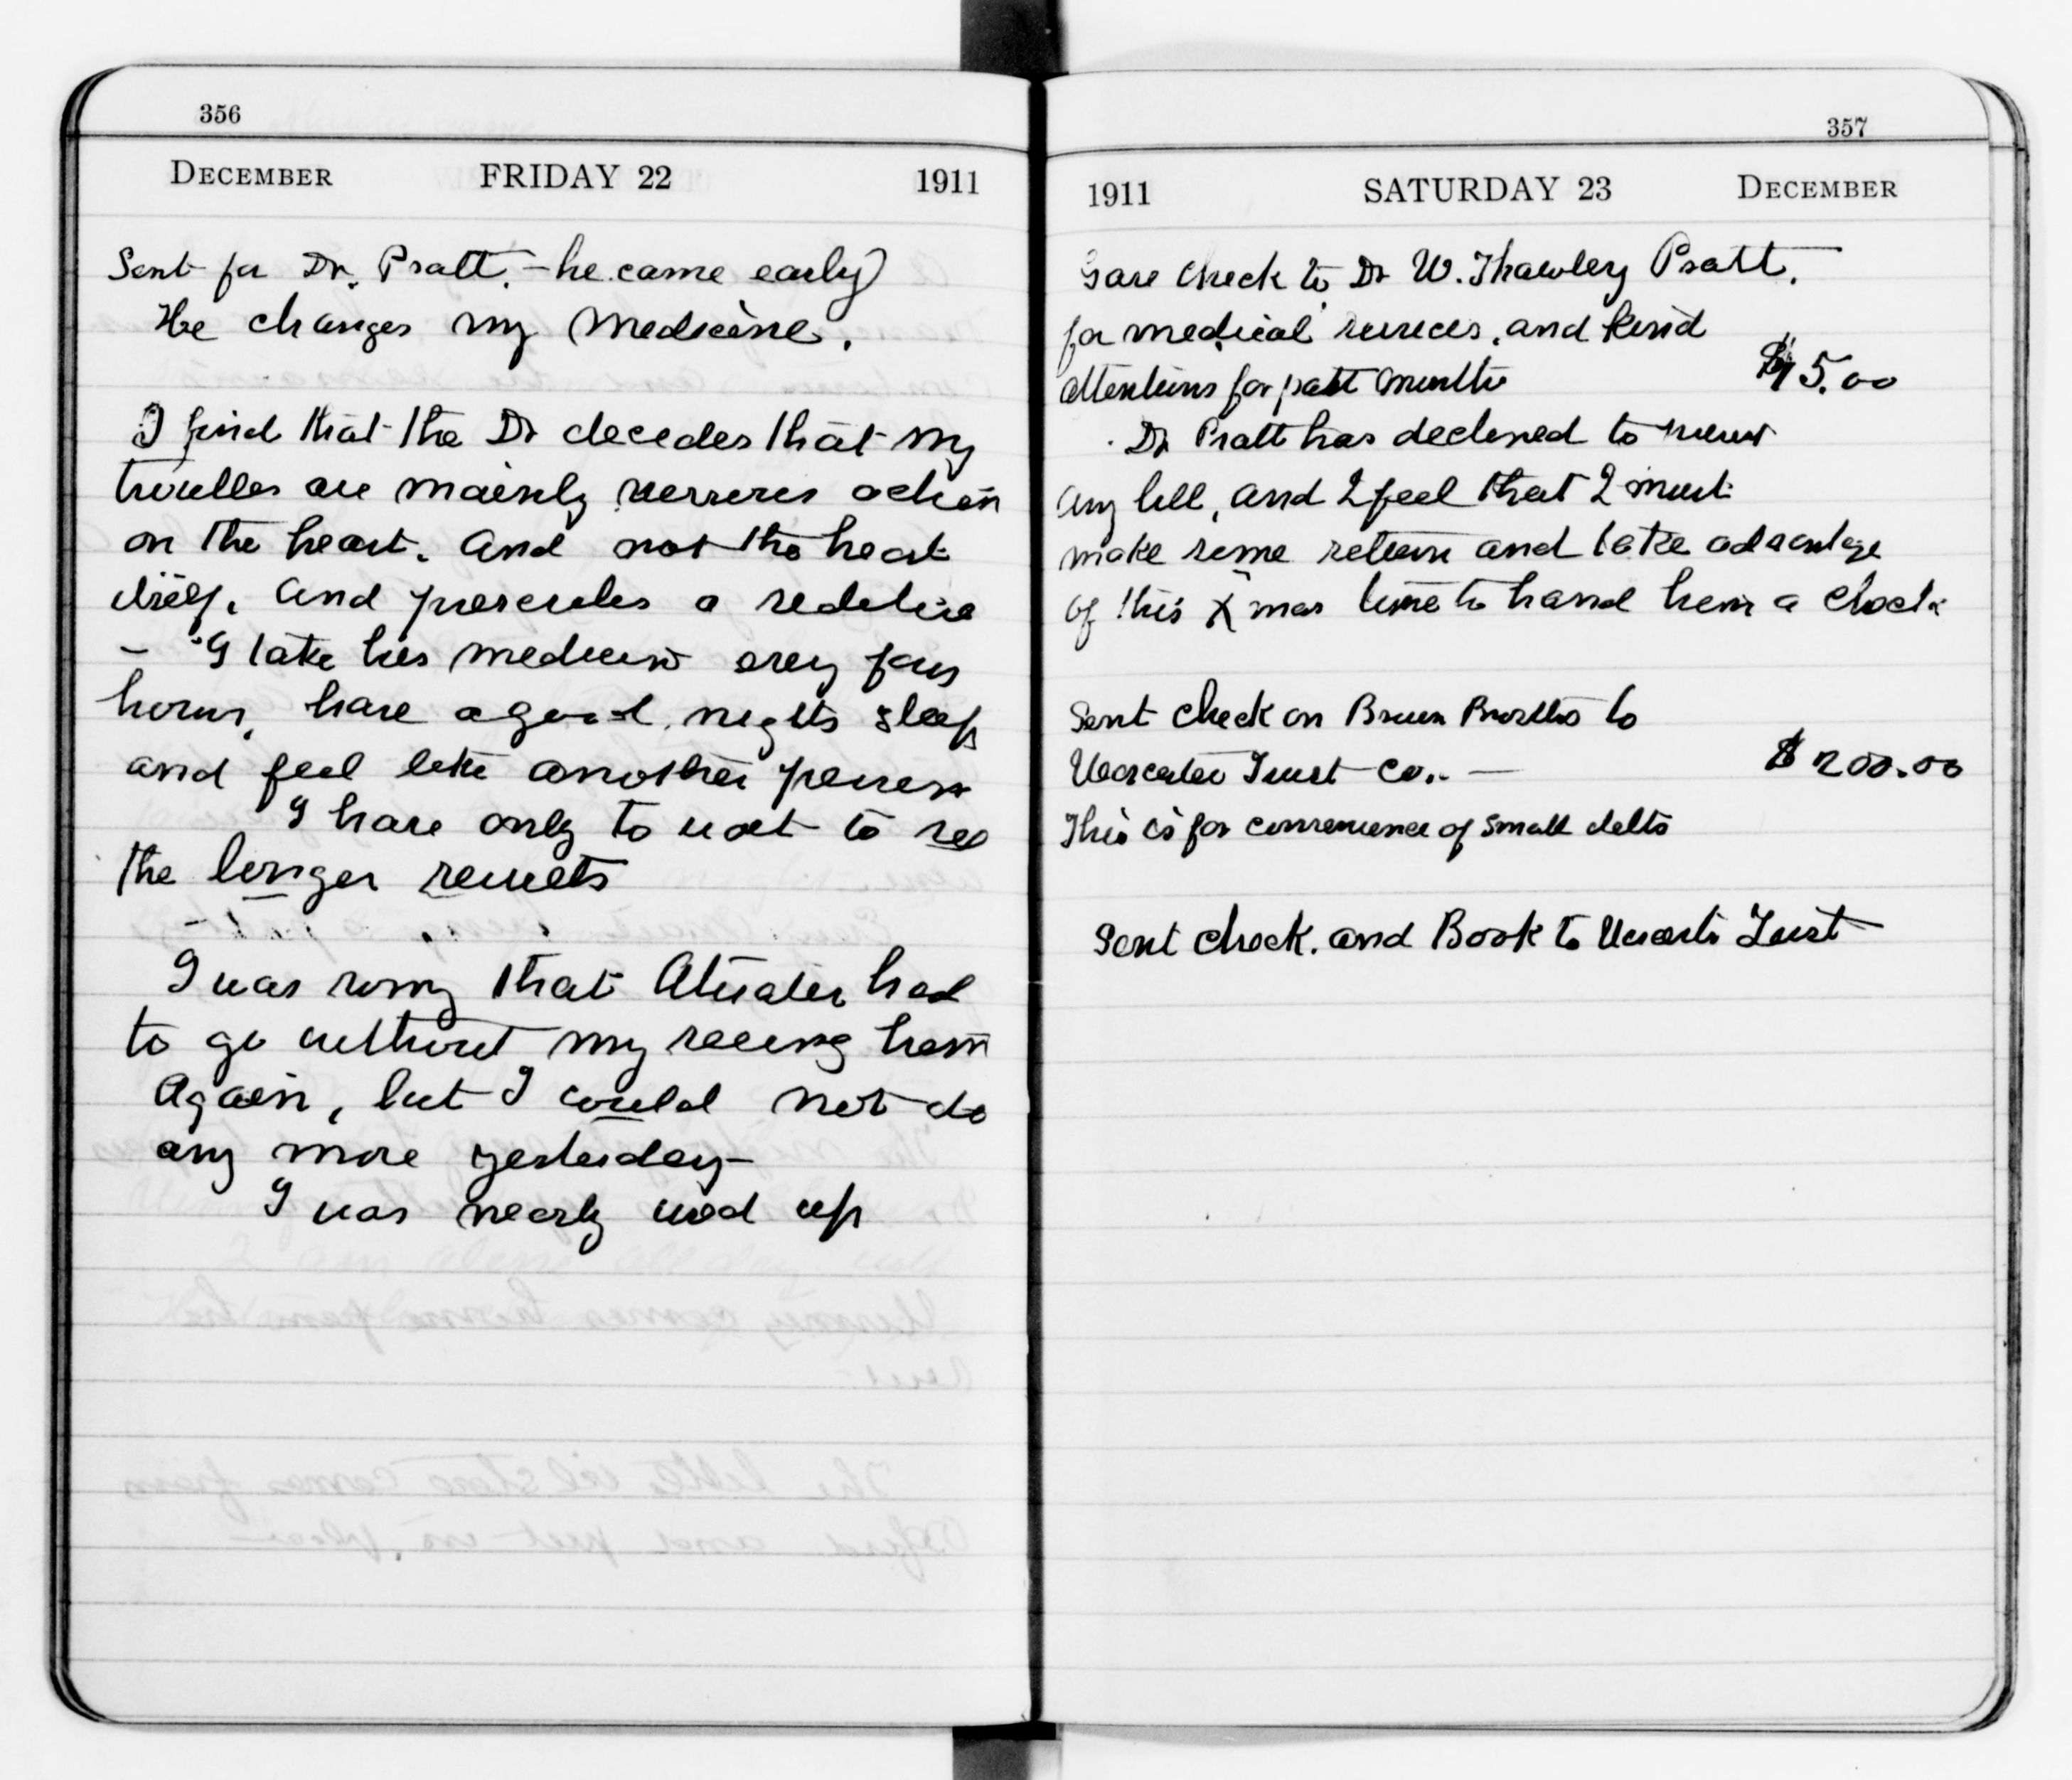 356
DECEMBER FRIDAY 22 1911
Sent for Dr. Pratt. - he came early
He changes my medicine.
I find that the Dr decides that my
troubles are mainly nervous action
on the heart. And not the heart
itself. And prescribes a sedative
- I take his medicine every four
hours, have a good nights sleep
and feel like another person
I have only to wait to see
the longer results
I was sorry that Atwater had
to go without my seeing him
Again, but I could not do
any more yesterday-
I was nearly used up
357
1911 SATURDAY 23 DECEMBER
Gave check to Dr W. Thawley Pratt.
for medical services, and kind
attentions for past months $ 5.00
Dr Pratt has declined to
any bill, and I feel that I must
make some return and take advantage
of this Xmas time to hand him a check
Sent check on Brown Brothers to
Worcester Trust Co.. — $ 200.00
This is for convenience of small debts
Sent check. and Book to Worcester Trust